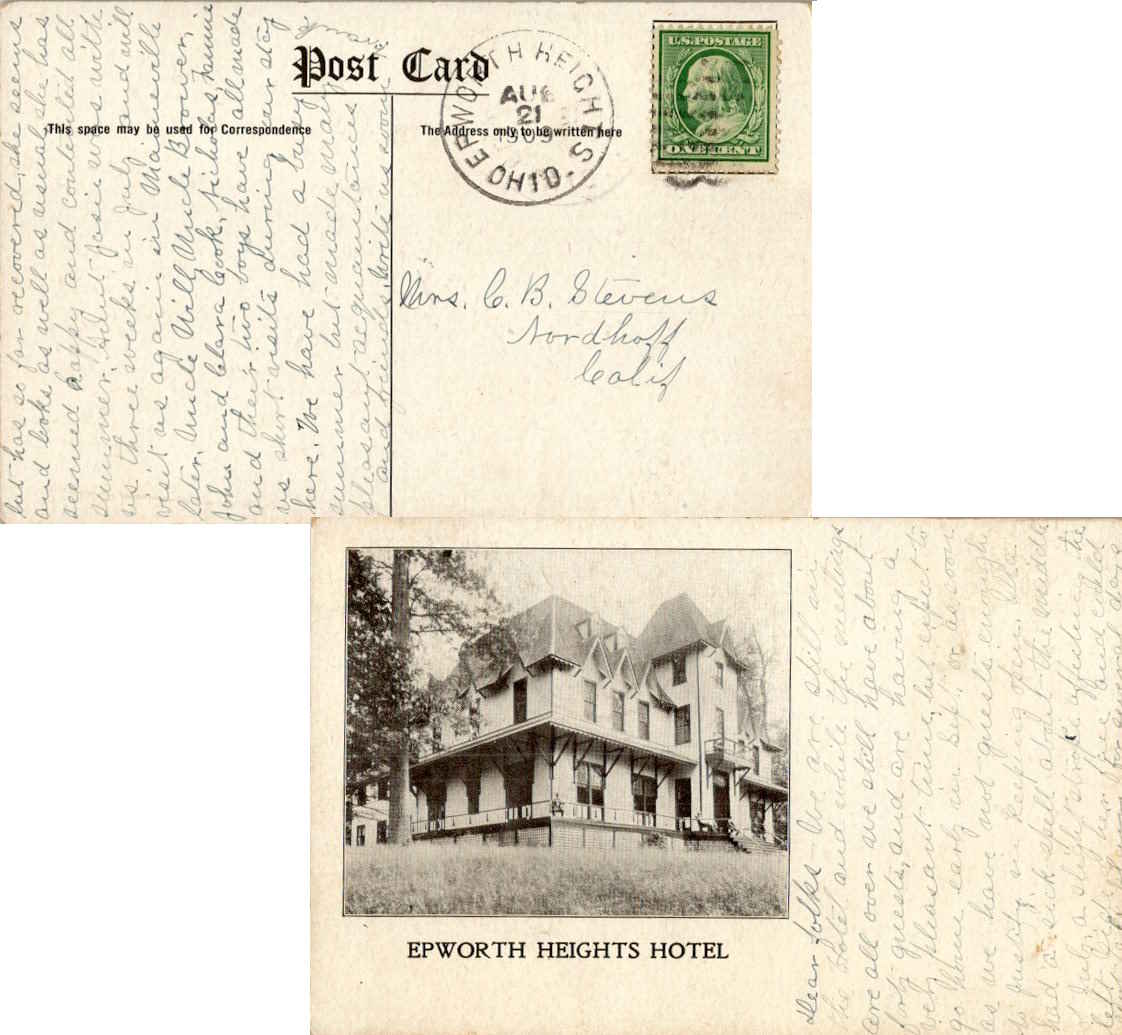 Post Card
This space may be used for Correspondence
The Address only to be written here
EPWORTH HEIGHTS
AUG
21
1909
OHIO
U.S. POSTAGE
ONE CENT
Mrs. C. B. Stevens
Nordhoff
Calif
but has so far recovered, she seems
and looks as well as usual. She has
seemed happy and contented all
summer. Aunt Josie was with
us three weeks in July and will
visit us again in Maineville
later. Uncle Will, Uncle
John and Clara Cook, Nicholas, Fannie
and their two boys have all made
us short visits during our stay
here. We have had a busy
summer but made many
pleasant acquaintances
and friends. Write us soon
EPWORTH HEIGHTS HOTEL
Dear folks We are still in
the Hotel and while the meetings
are all over we still have about
forty guests, and are having a
very pleasant time, but expect to
go home early in Sept. or as soon
as we have not guests enough
to justify in keeping open. Ella
had a sick spell about the middle
of July, a slight stroke affecting the
left